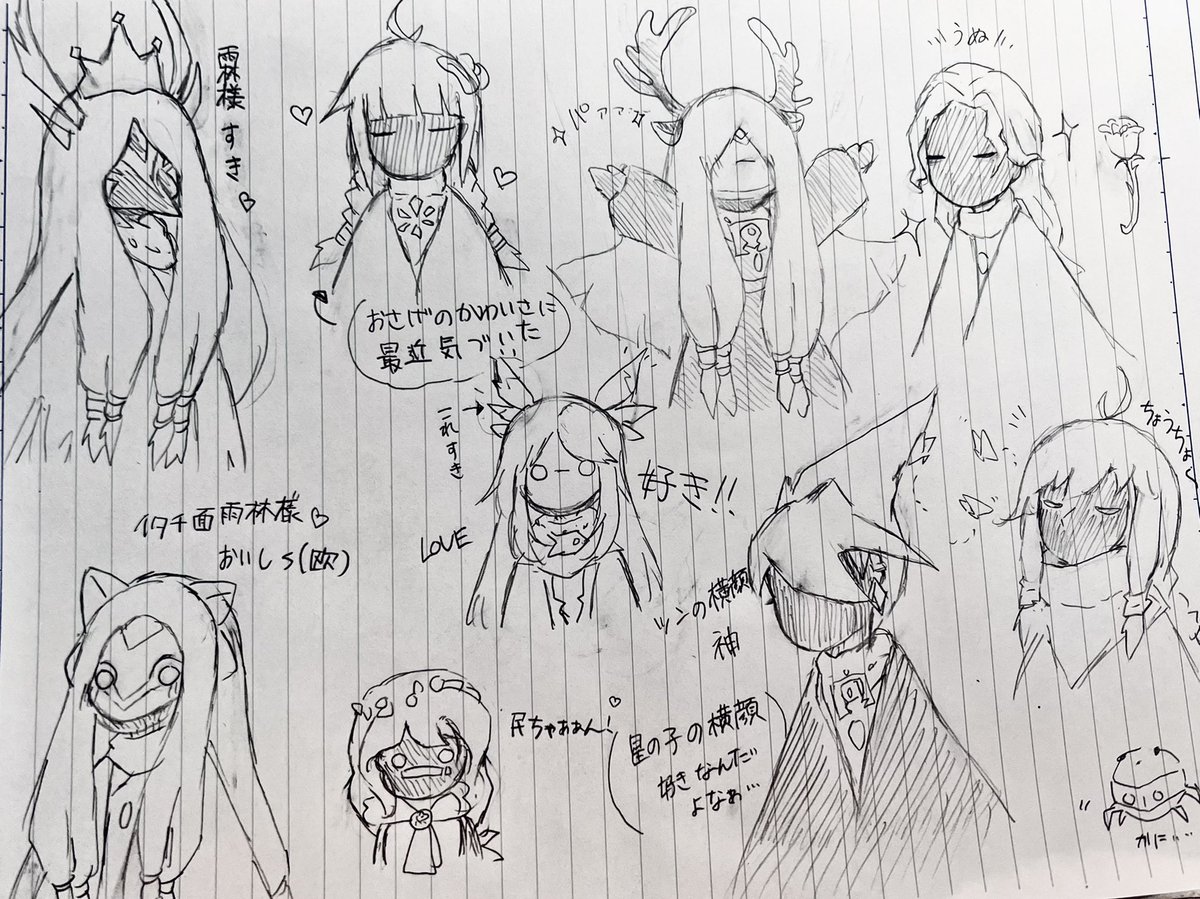 雨林様 すき
うぬ
パァァ
おさげのかわいさに
最近気づいた!!
これすき
好き!!
LOVE
ちょうちょ
イタチ面雨林様
おいしS(欧)
ツンの横顔
神
民ちゃあぁん!
星の子の横顔
好きなんだ
よなぁ…
かに…